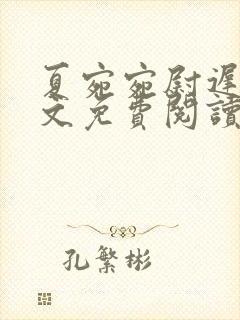 夏宛宛尉遲
文免費閱讀
孔繁彬